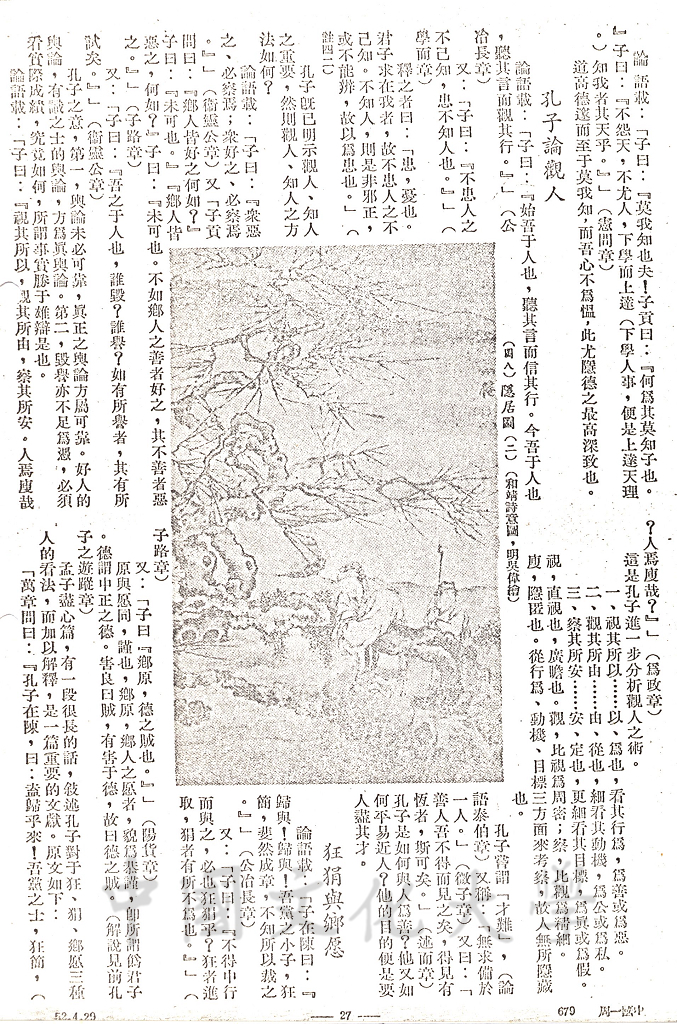 論語載：「子曰：『莫我知也夫！子貢曰：『何爲其莫知子也。
』子曰：『不怨天，不尤人，下學而上達（下學人事，便是上達天理
。）知我者其天乎。』」（憲問章）
道高德邃而至于莫我知，而吾心不爲慍，此尤隱德之最高深致也。
孔子論觀人
論語載：「子曰：『始吾于人也，聽其言而信其行。今吾于人也
，聽其言而觀其行。』」（公
冶長章）
又：「子曰：『不患人之
不己知，患不知人也。』」（
學而章）
釋之者曰：「患，憂也。
君子求在我者，故不患人之不
己知。不知人，則是非邪正，
或不能辨，故以爲患也。」（
註四二）
孔子旣已明示觀人、知人
之重要，然則觀人、知人之方
法如何？
論語載：「子曰：『衆惡
之、必察焉；衆好之、必察焉
。』」（衞靈公章）又「子貢
問曰：『鄉人皆好之何如？』
子曰：『未可也。』『鄉人皆
惡之，何如？』子曰：『未可也。不如鄉人之善者好之，其不善者惡
之。』」（子路章）
又：「子曰：『吾之于人也，誰毀？誰譽？如有所譽者，其有所
試矣。』」（衞靈公章）
孔子之意，第一，輿論未必可靠，眞正之輿論方屬可靠。好人的
輿論，有識之士的輿論，方爲眞輿論。第二，毀譽亦不足爲憑，必須
看實際成績，究竟如何，所謂事實勝于雄辯是也。
論語載：「子曰：『視其所以，觀其所由，察其所安。人焉廋哉
（圖八）隱居圖（二）（和靖詩意圖，明吳偉繪）
？人焉廋哉？』」（爲政章）
這是孔子進一步分析觀人之術。
一、視其所以……以、爲也，看其行爲，爲善或爲惡。
二、觀其所由……由、從也，細看其動機，爲公或爲私。
三、察其所安……安、定也，更細看其目標，爲眞或爲假。
視，直視也，廣瞻也。觀，比視爲周密；察，比觀爲精細。
廋，隱匿也。從行爲、動機、目標三方面來考察，故人無所隱藏
也。
孔子嘗謂「才難」，（論
語泰伯章）又稱「無求備於
一人。」（微子章）又曰：「
善人吾不得而見之矣，得見有
恆者，斯可矣。」（述而章）
孔子是如何與人爲善？他又如
何平易近人？他的目的便是要
人盡其才。
狂狷與鄉愿
論語載「子在陳曰：『
歸與！歸與！吾黨之小子，狂
簡，斐然成章，不知所以裁之
。』」（公冶長章）
又：「子曰：『不得中行
而與之，必也狂狷乎？狂者進
取，狷者有所不爲也。』」（
子路章）
又：「子曰『鄉原，德之賊也。』」（陽貨章）
原與愿同，謹也，鄉原，鄉人之愿者，貌爲恭謹，卽所謂僞君子
。德謂中正之德。害良曰賊，有害于德，故曰德之賊。（解說見前孔
子之遊蹤章）
孟子盡心篇，有一段很長的話，敍述孔子對于狂、狷、鄉愿三種
人的看法，而加以解釋，是一篇重要的文獻。原文如下：
「萬章問曰：『孔子在陳，曰：盍歸乎來！吾黨之士，狂簡，（
52.4.29
— 27 —
679
中國一周
中國文化大學